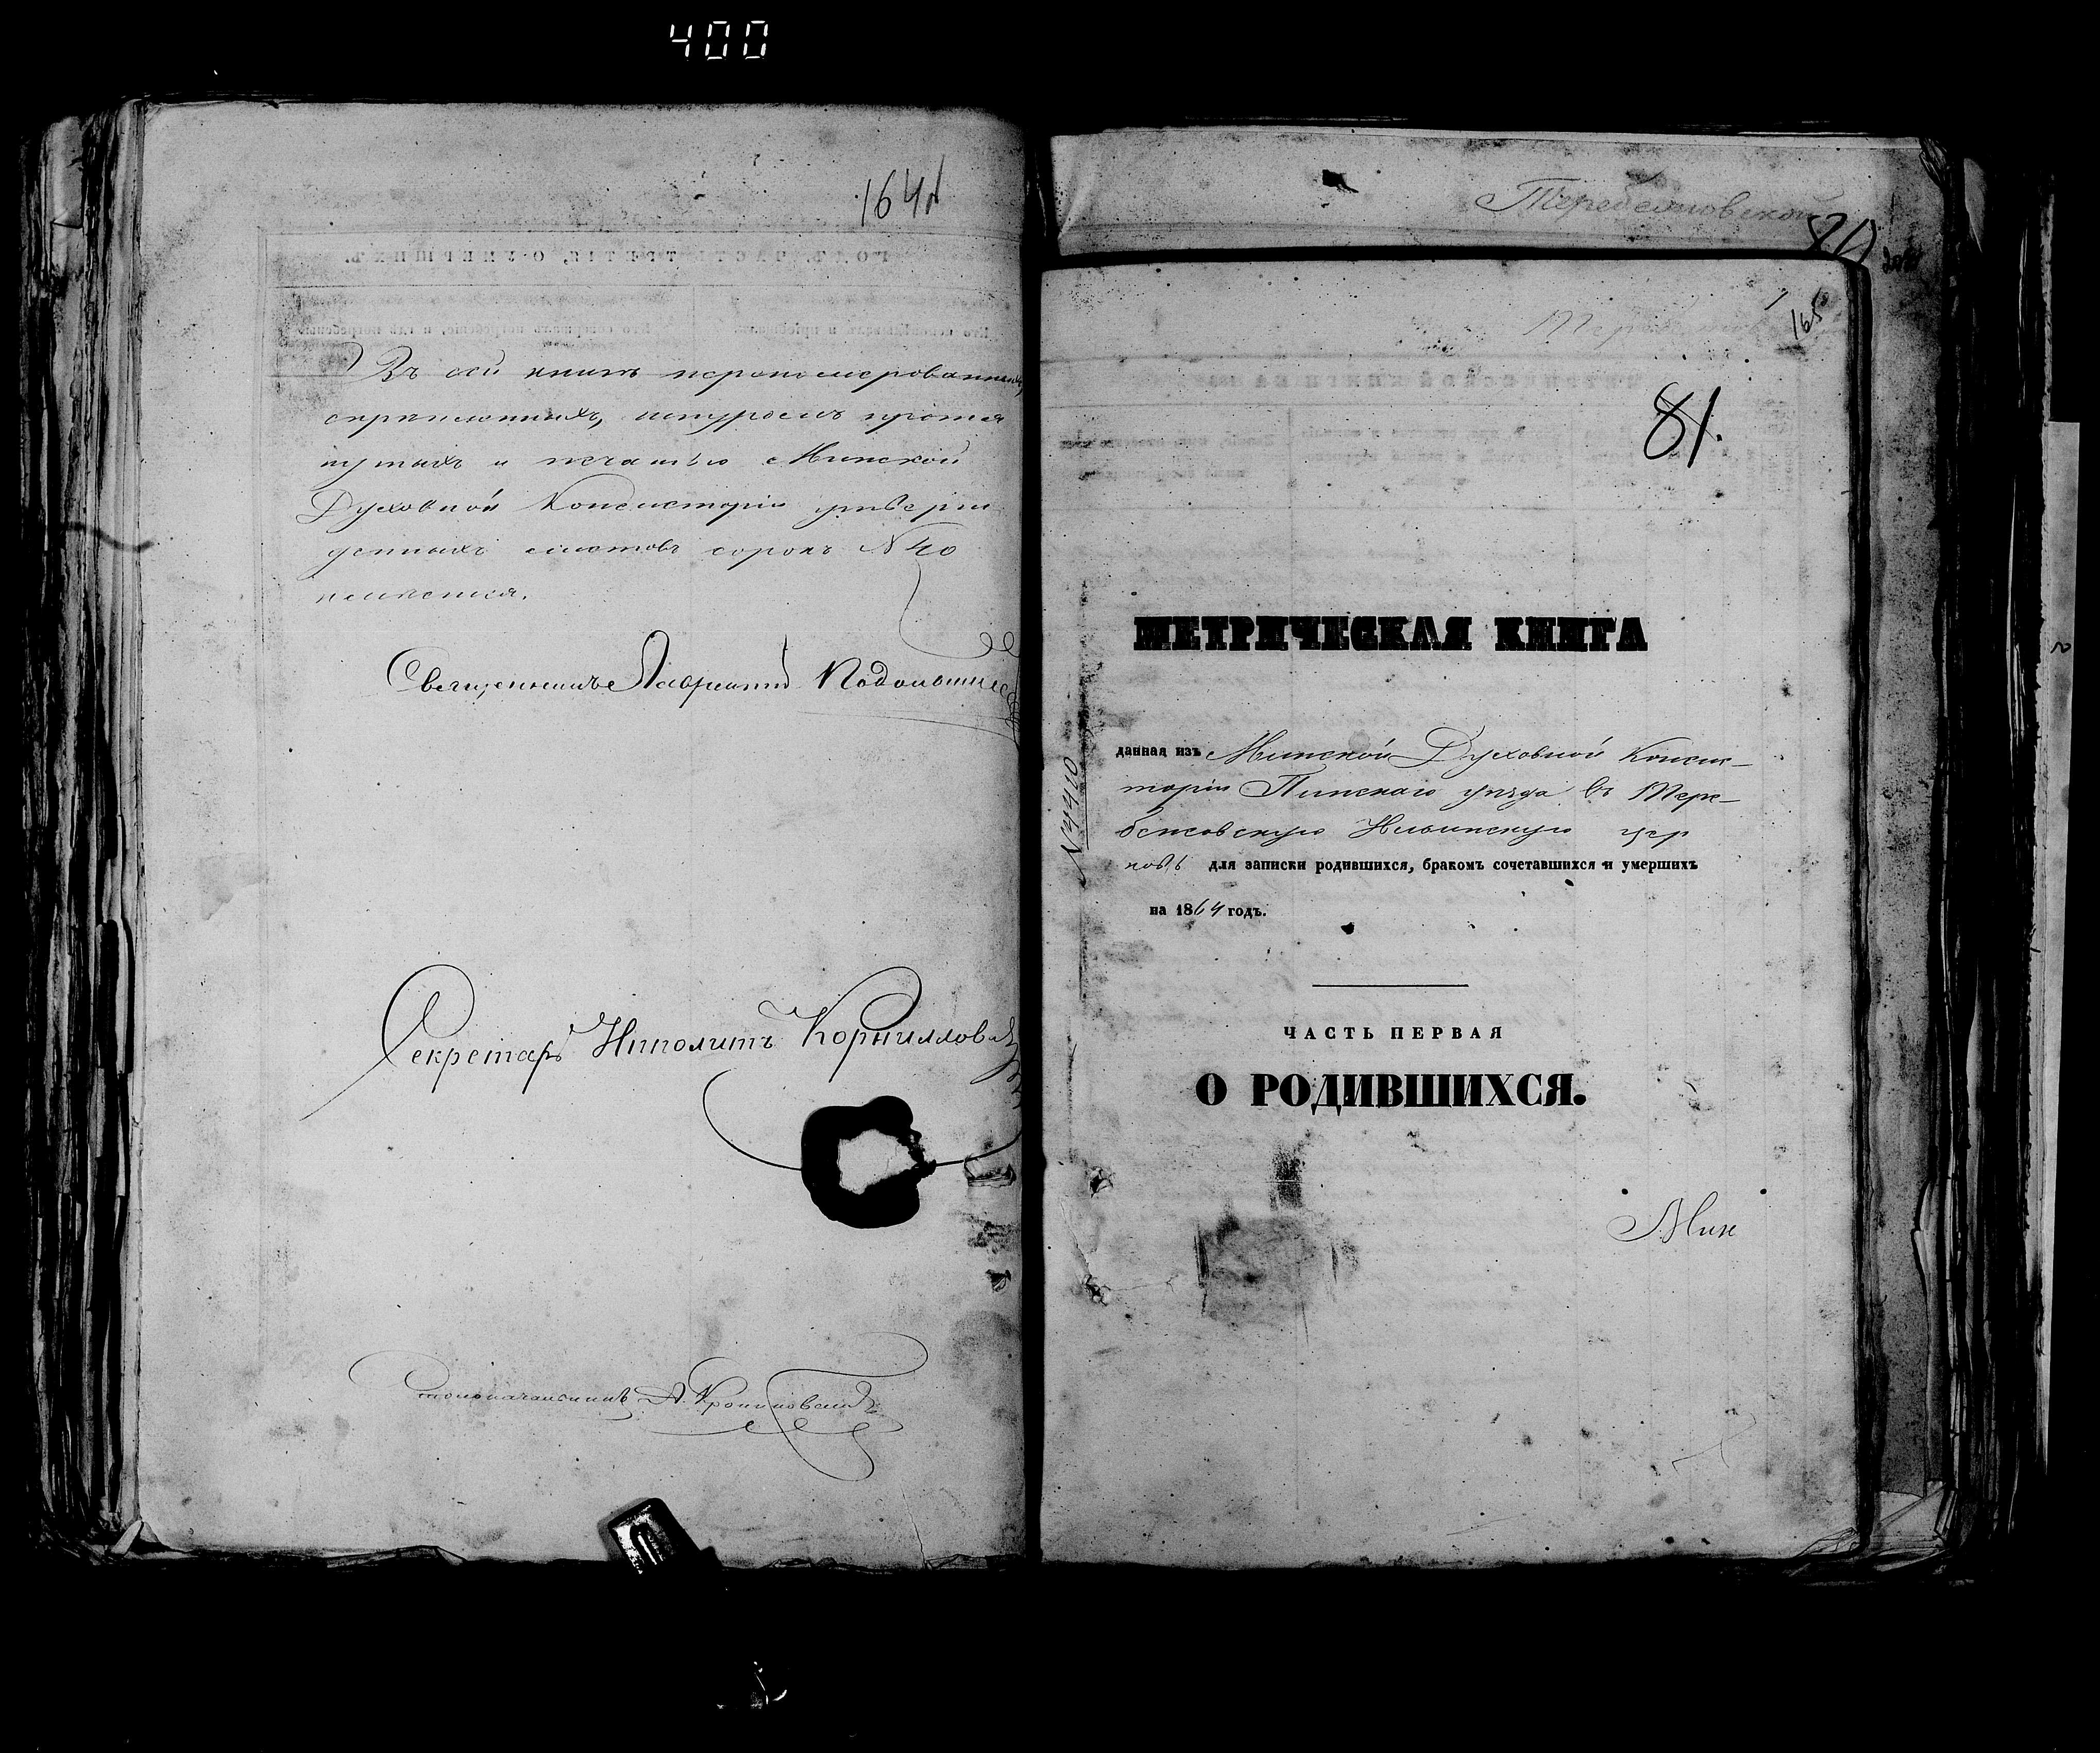 400
164
Въ сей книгѣ перенумерованныхъ,
скрѣпленныхъ, шнуромъ протя
нутыхъ и печатью Минской
Духовной Консисторіи утверж
денныхъ листовъ сорокъ N 40
Священникъ Лаврентій
Секретарь Ипполитъ Корнилловъ
Столоначальникъ А.
Теребежовской
80
165
81.
МЕТРИЧЕСКАЯ КНИГА
N 4410
данная изъ Минской Духовной Консис-
торіи Пинскаго уѣзда въ Тере-
бежовскую Ильинскую цер
ковь для записки родившихся, бракомъ сочетавшихся и умершихъ
на 1864 годъ.
ЧАСТЬ ПЕРВАЯ
О РОДИВШИХСЯ.
Мин